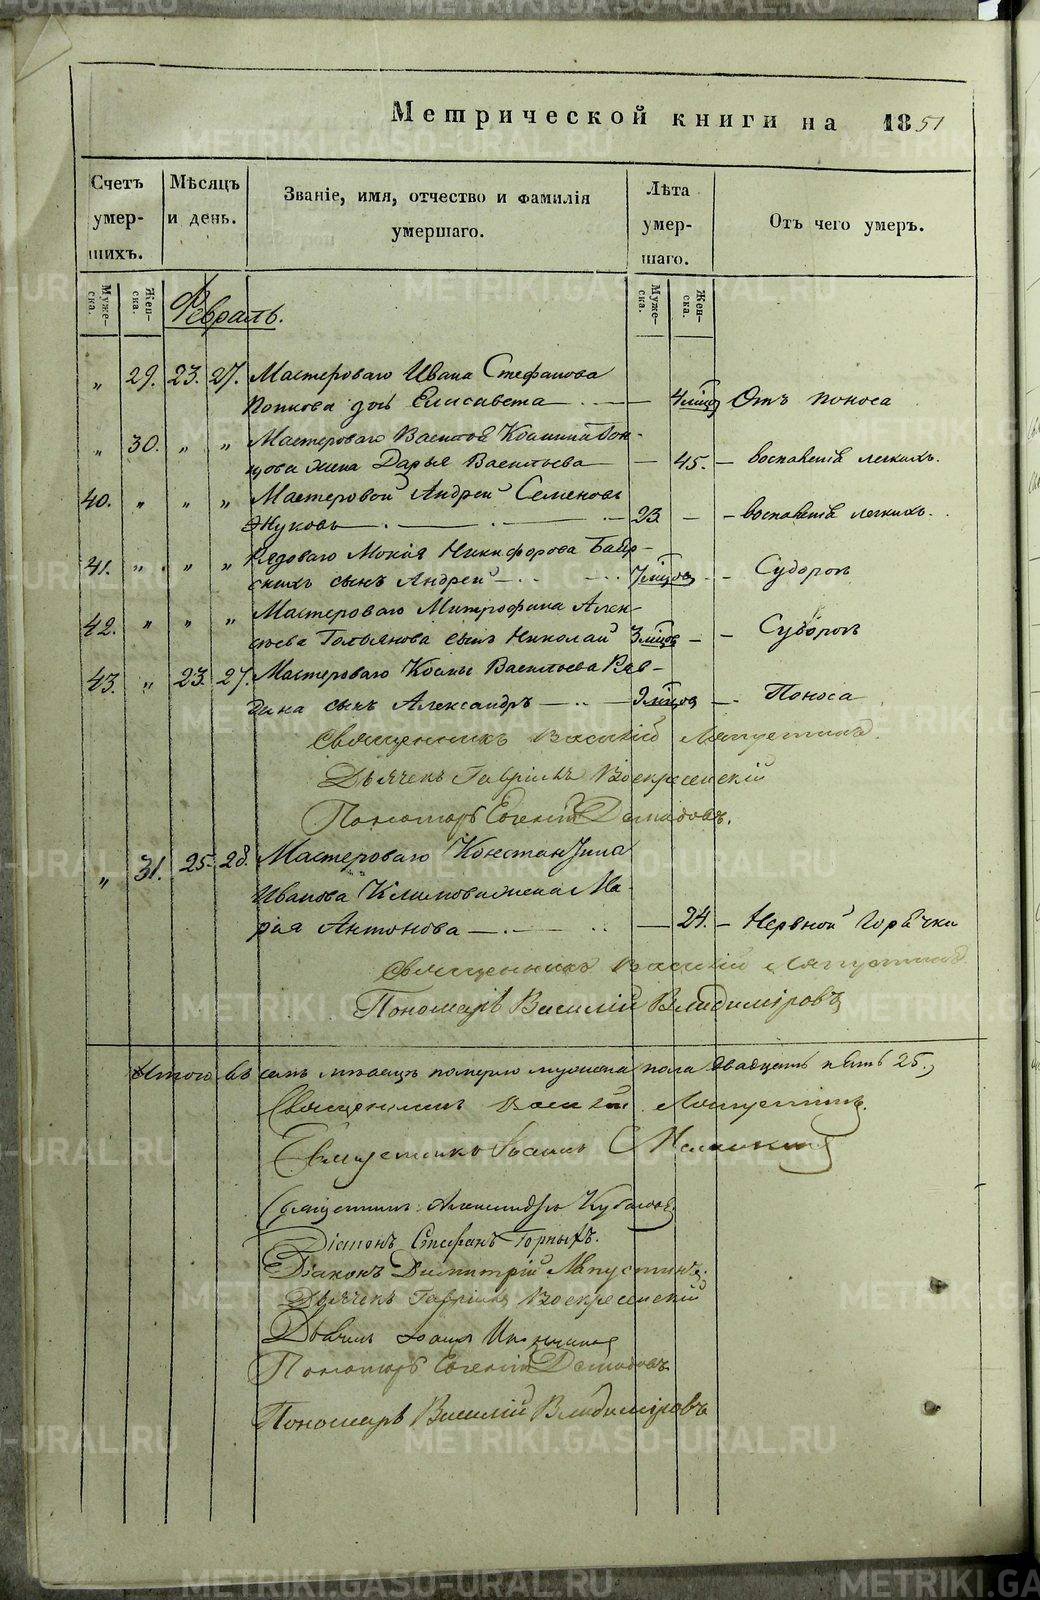 Метрической книги на 1851
Счетъ умер- шихъ.
Мѣсяцъ и день.
Званіе, имя, отчество и фамилія умершаго.
Лѣта умер- шаго.
Отъ чего умеръ.
Муже- ска.
Жен- ска.
Муже- ска.
Жен- ска.
Февраль.
„ 29. 23. 27. Мастероваго Ивана Стефанова
Попкова дочь Елисавета — 4 мѣсц Отъ поноса
„ 30. „ „ Мастероваго
жена Дарья Васильева — 45. — воспаленія легкихъ.
40. „ „ „ Мастеровой Андрей Семеновъ
Жуковъ — 23. — воспаленія легкихъ.
41. „ „ „ Рядоваго Мокія Никифорова
сынъ Андрей — 7 мѣсцов — Судорогъ
42. „ „ „ Мастероваго Митрофана Алек-
сѣева сынъ Николай 3 мѣсцов — Судорогъ
43. „ 23. 27. Мастероваго Космы Васильева
сынъ Александръ — 9 мѣсцов — Поноса
Священникъ Василій Ляпустинъ.
Дьячекъ Гавріилъ Воскресенскій
Пономарь Евгеній Демидовъ.
„ 31. 25. 28. Мастероваго Константина
Иванова Климова жена Ма-
рія Антонова — 24. — Нервной горячки
Священникъ Василій Ляпустинъ
Пономарь Василій Владиміровъ
Итого въ семъ мѣсяцѣ померло мужеска пола двадцать пять 25.,
Священникъ Василій Ляпустинъ.
Священникъ Іоаннъ
Священникъ Александръ
Діаконъ Стефанъ Горныхъ.
Діаконъ Димитрій Ляпустинъ.
Дьячекъ Гавріилъ Воскресенскій
Дьячекъ
Пономарь Евгеній Демидовъ
Пономарь Василій Владиміровъ
METRIKI.GASO-URAL.RU